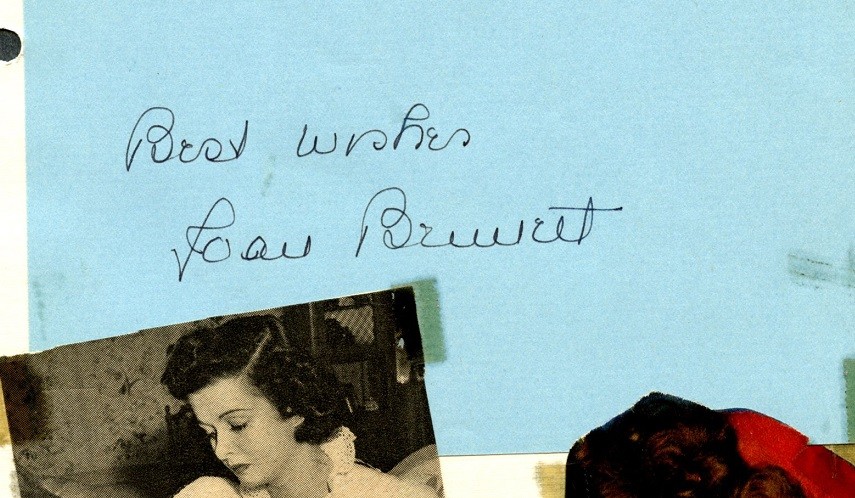 Best wishes
Joan Bennett